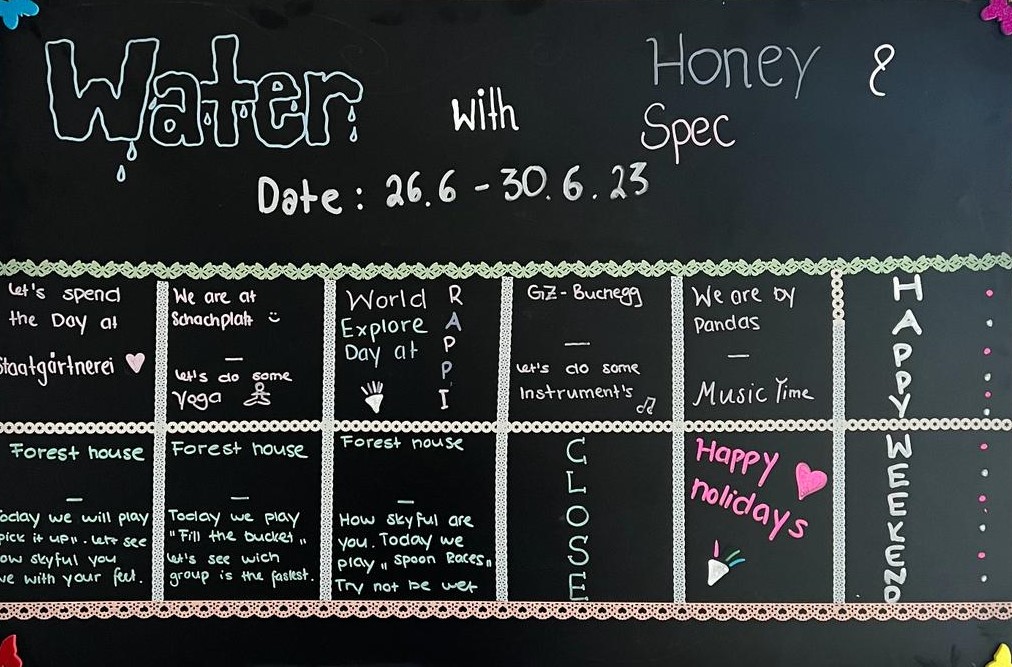 Water with Honey &
Spec
Date: 26.6 - 30.6.23
Let's spend
the Day at
Staatgärtnerei
We are at
Schachplatz
Let's do some
Yoga
World
Explore
Day at
RAPPI
GZ-Buchegg
Let's do some
Instrument's
We are by
Pandas
Music Time
HAPPY
Forest house
Today we will play
"pick it up". Lets see
how skyful you
are with your feet.
Forest house
Today we play
"Fill the bucket"
Let's see wich
group is the fastest.
Forest house
How skyful are
you. Today we
play "Spoon Races"
Try not be wet
CLOSE
Happy
holidays
WEEKEND